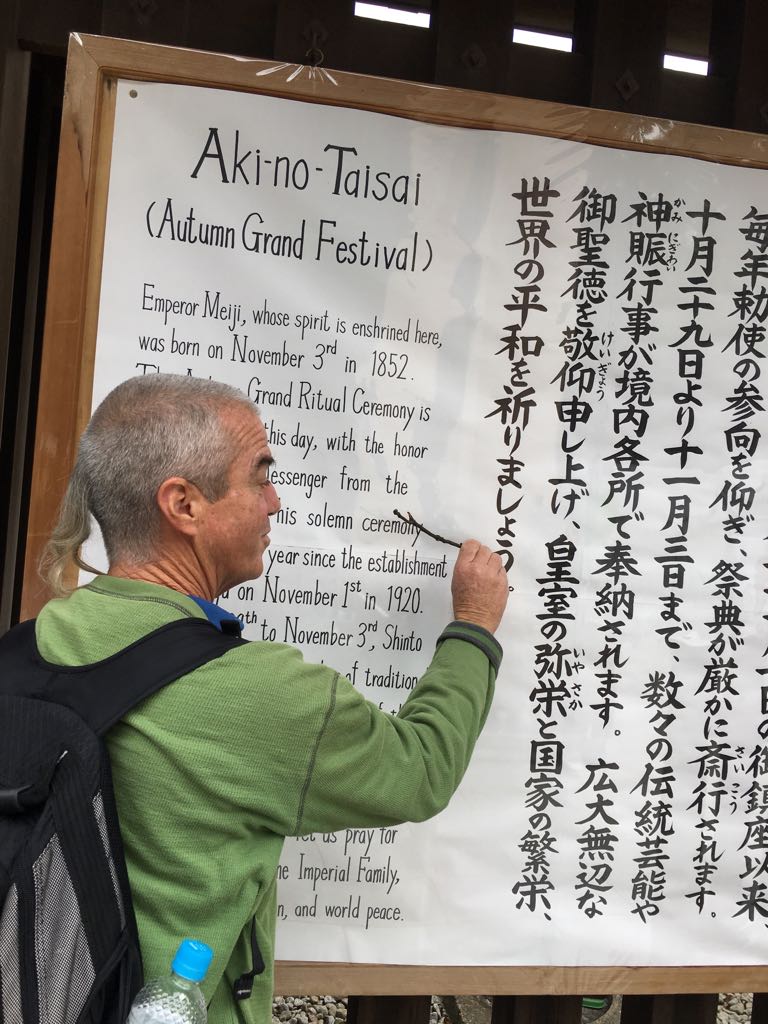 Aki-no-Taisai
(Autumn Grand Festival)
Emperor Meiji, whose spirit is enshrined here,
was born on November 3rd in 1852.
Grand Ritual Ceremony is
this day, with the honor
from the
his solemn ceremony
year since the establishment
on November 1st in 1920.
to November 3rd, Shinto
of tradition
let us pray for
Imperial Family,
and world peace.
月一日の御鎮座以来、
毎年勅使の参向を仰ぎ、祭典が厳かに斎行されます。
さいこう
十月二十九日より十一月三日まで、数々の伝統芸能や
かみにぎわい
神賑行事が境内各所で奉納されます。広大無辺な
けいぎょう
いやさか
御聖徳を敬仰申し上げ、皇室の弥栄と国家の繁栄、
世界の平和を祈りましょう。